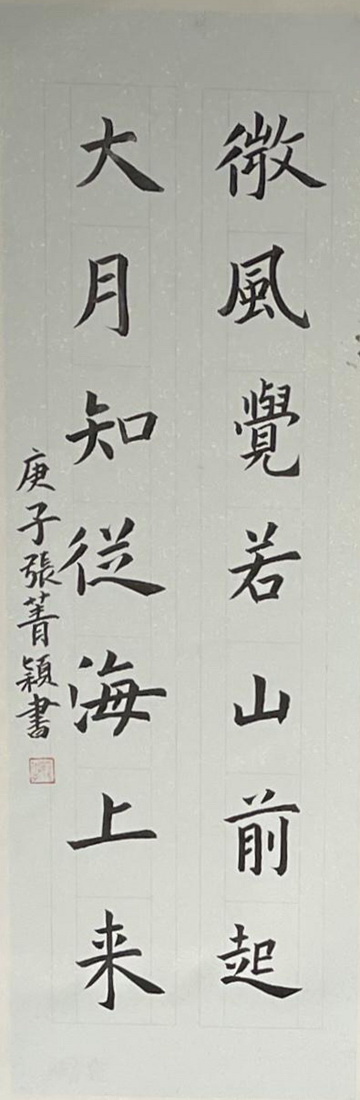 微風覺若山前起
大月知從海上来
庚子張菁穎書